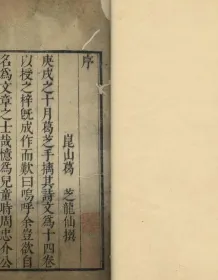 序
崑山葛 芝龍仙撰
庚戌之十月葛芝手摘其詩文爲十四卷
以授之梓旣成作而歎曰嗚呼余豈欲自
名爲文章之士哉憶爲兒童時周忠介公